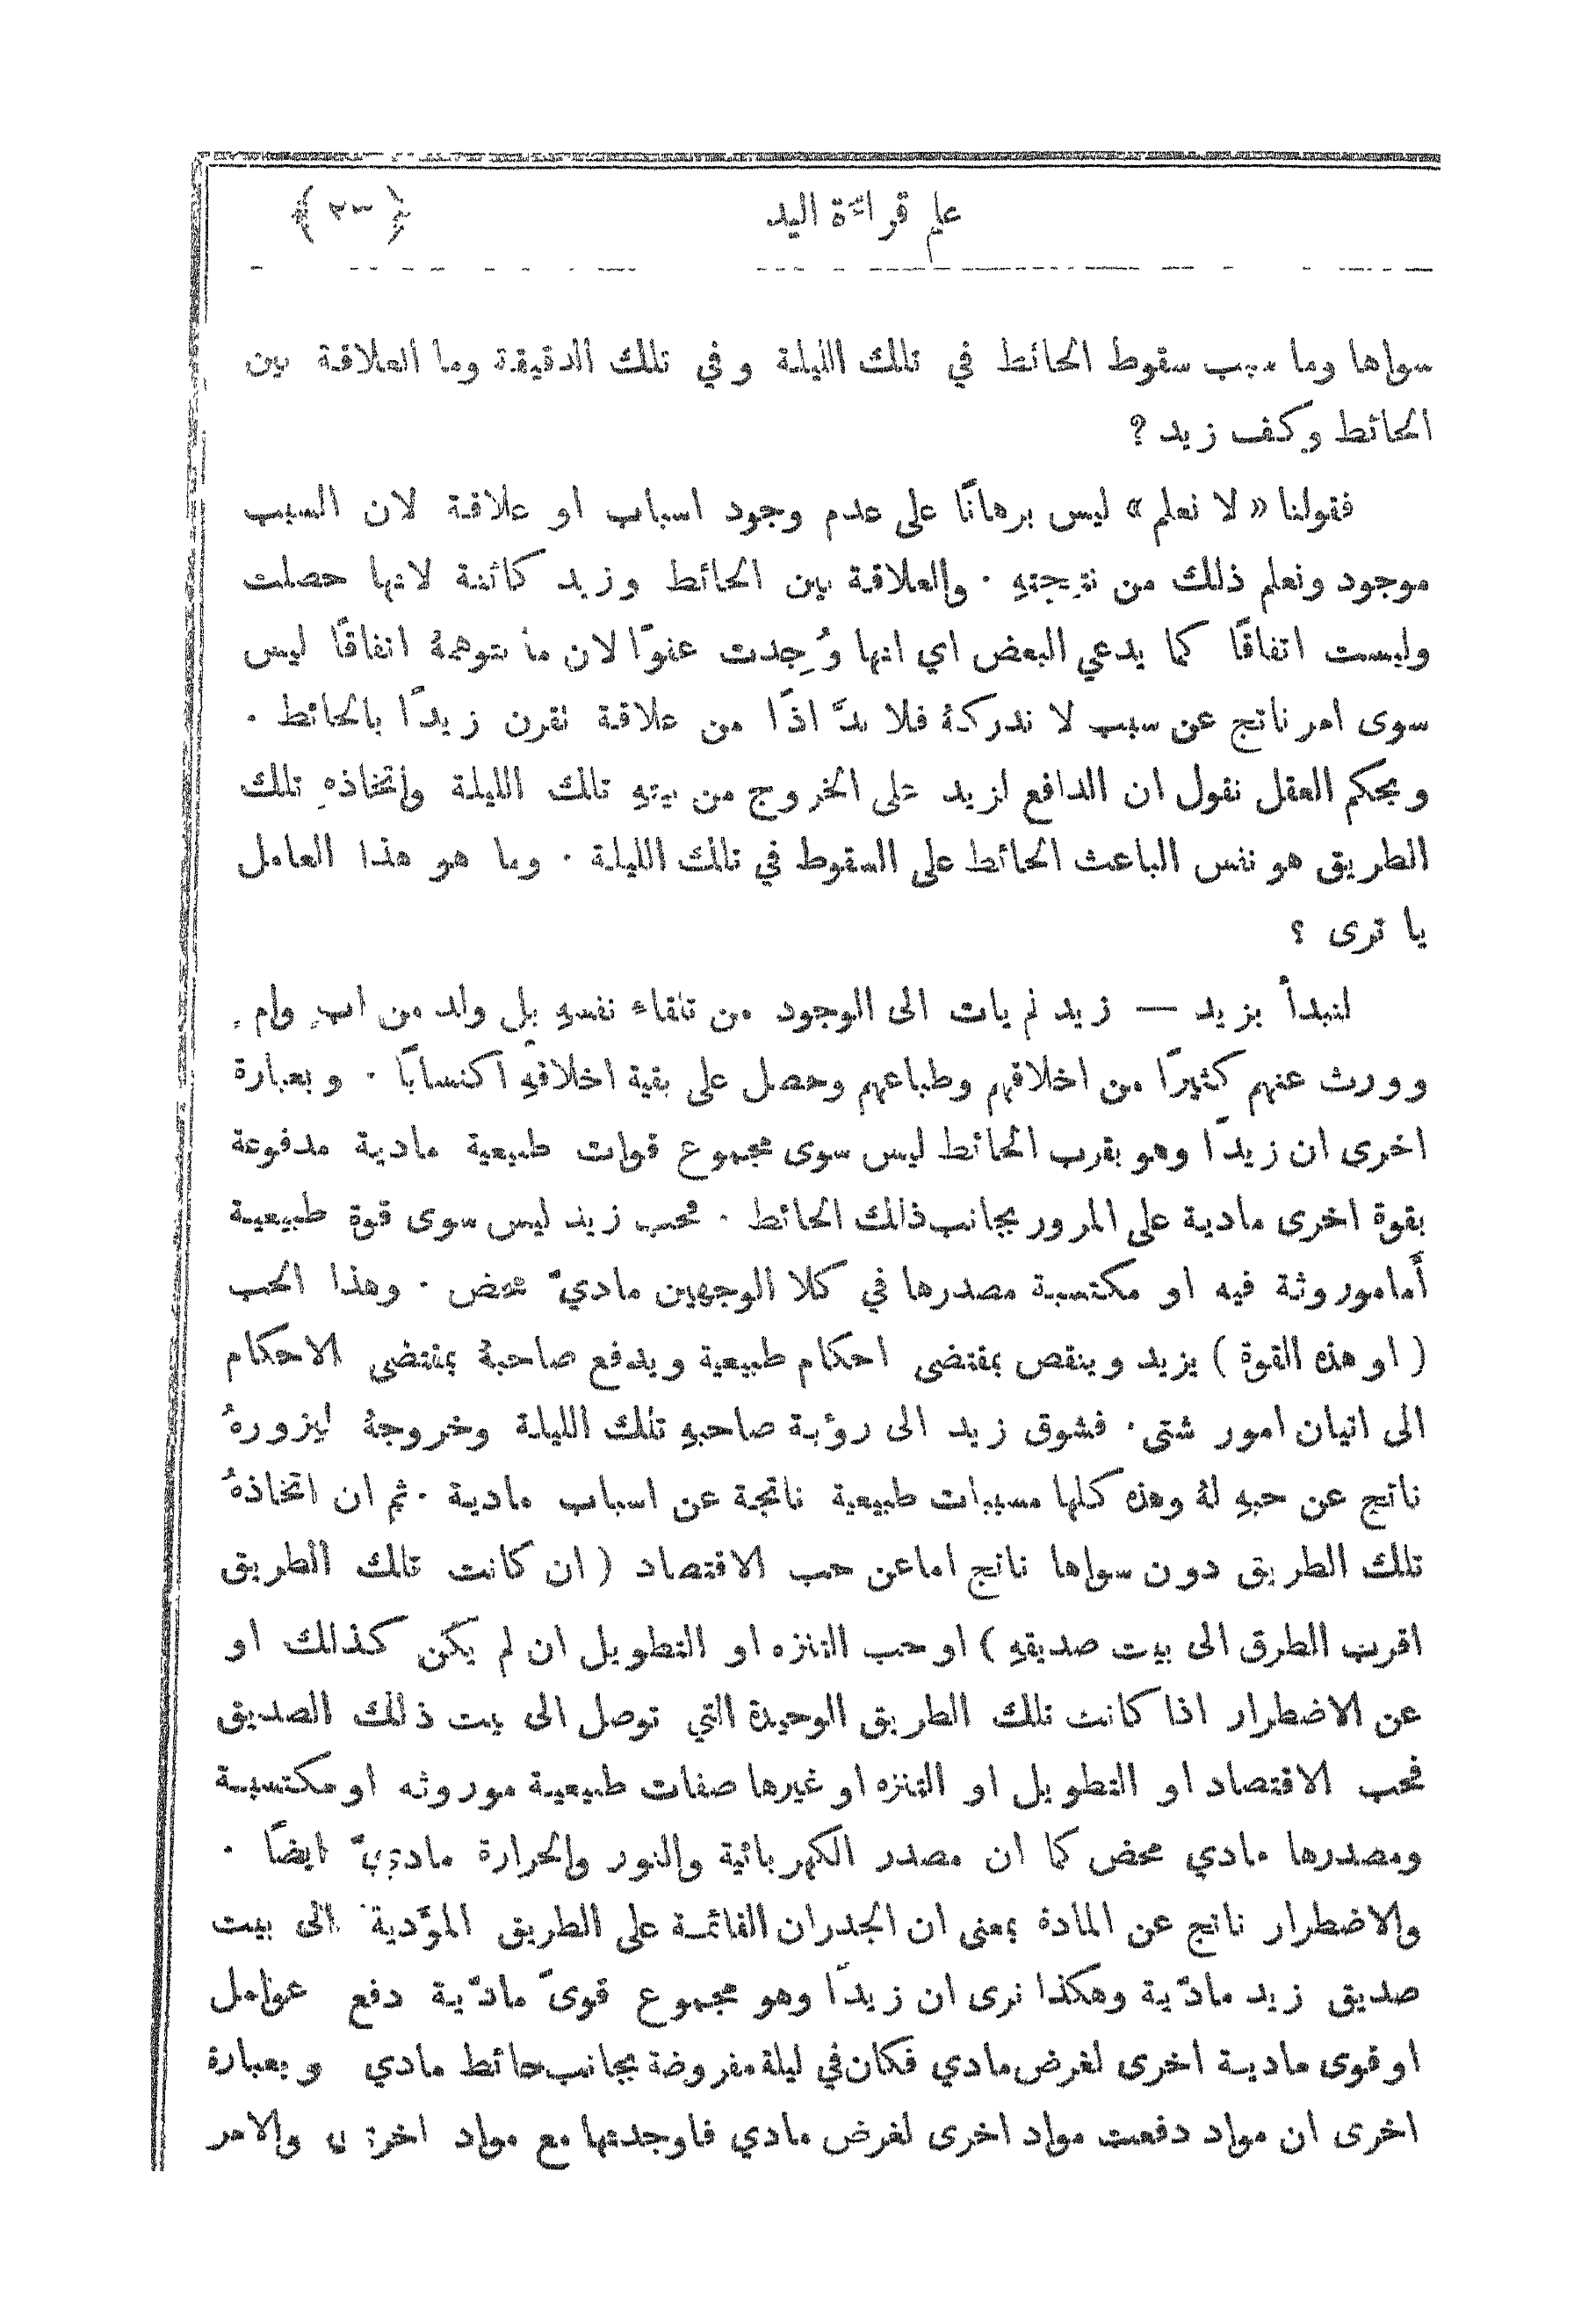 علم قراءة اليد ﴿ ٢٣ ﴾
سواها وما سبب سقوط الحائط في تلك الليلة وفي تلك الدقيقة وما العلاقة بين
الحائط وكف زيد ؟
فقولنا « لا نعلم » ليس برهانًا على عدم وجود اسباب او علاقة لان السبب
موجود ونعلم ذلك من نتيجتهِ . والعلاقة بين الحائط وزيد كائنة لانها حصلت
وليست اتفاقًا كما يدعي البعض اي انها وُجِدت عفوًا لان ما نتوهمهُ اتفاقًا ليس
سوى امر ناتج عن سبب لا ندركهُ فلا بدَّ اذًا من علاقة تقرن زيدًا بالحائط .
وبحكم العقل نقول ان الدافع لزيد على الخروج من بيتهِ تلك الليلة واتخاذهِ تلك
الطريق هو نفس الباعث الحائط على السقوط في تلك الليلة . وما هو هذا العامل
يا ترى ؟
لنبدأ بزيد — زيد لم يات الى الوجود من تلقاء نفسهِ بل ولد من ابٍ وامٍ
وورث عنهم كثيرًا من اخلاقهم وطباعهم وحصل على بقية اخلاقهِ اكتسابًا . وبعبارة
اخرى ان زيدًا وهو بقرب الحائط ليس سوى مجموع قوات طبيعية مادية مدفوعة
بقوة اخرى مادية على المرور بجانب ذلك الحائط . فحب زيد ليس سوى قوة طبيعية
أما موروثة فيه او مكتسبة مصدرها في كلا الوجهين ماديّ محض . وهذا الحب
( او هذه القوة ) يزيد وينقص بمقتضى احكام طبيعية ويدفع صاحبهُ بمقتضى الاحكام
الى اتيان امور شتى . فشوق زيد الى رؤية صاحبهِ تلك الليلة وخروجهُ ليزورهُ
ناتج عن حبهِ لهُ وهذه كلها مسببات طبيعية ناتجة عن اسباب مادية . ثم ان اتخاذهُ
تلك الطريق دون سواها ناتج اما عن حب الاقتصاد ( ان كانت تلك الطريق
اقرب الطرق الى بيت صديقهِ ) او حب التنزه او التطويل ان لم يكن كذلك او
عن الاضطرار اذا كانت تلك الطريق الوحيدة التي توصل الى بيت ذلك الصديق
فحب الاقتصاد او التطويل او التنزه او غيرها صفات طبيعية موروثه او مكتسبة
ومصدرها مادي محض كما ان مصدر الكهربائية والنور والحرارة ماديّ ايضًا .
والاضطرار ناتج عن المادة بمعنى ان الجدران القائمة على الطريق المؤَدية الى بيت
صديق زيد مادّية وهكذا نرى ان زيدًا وهو مجموع قوىً مادّية دفع عوامل
او قوى مادية اخرى لغرض مادي فكان في ليلة مفروضة بجانب حائط مادي وبعبارة
اخرى ان مواد دفعت مواد اخرى لغرض مادي فاوجدتها مع مواد اخرى والامر